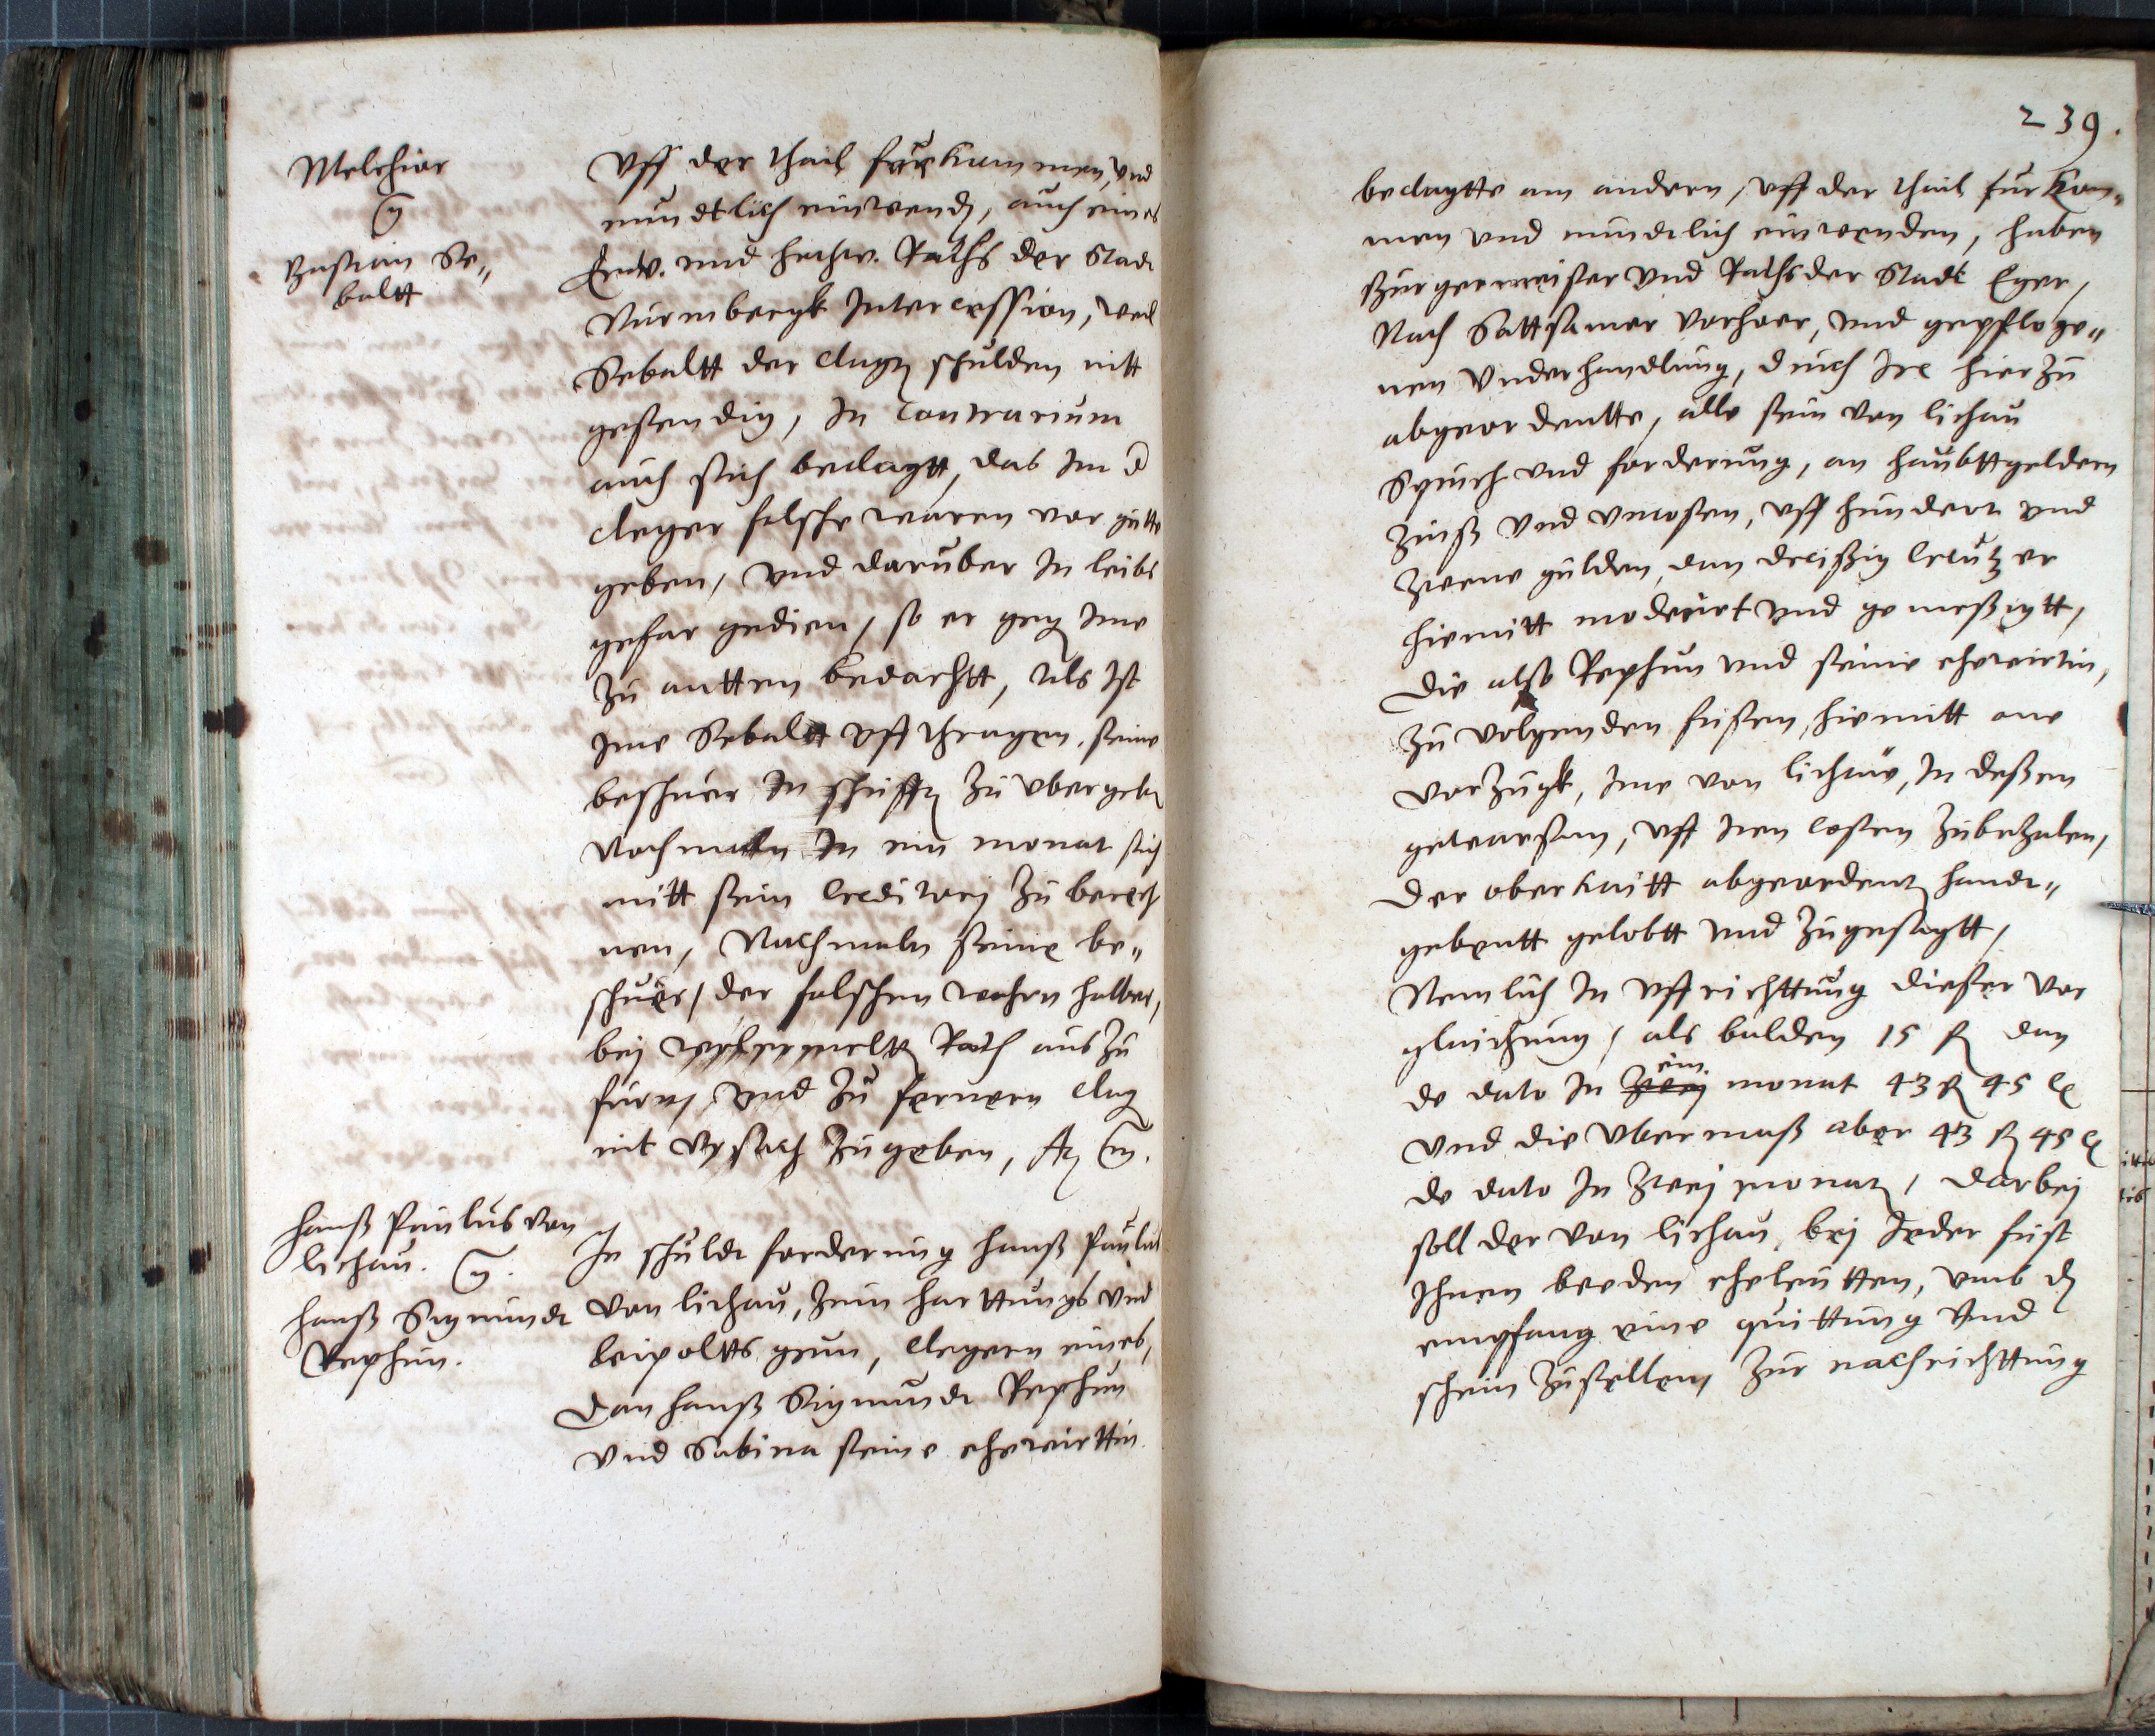 Melchior
Bastian Se„
baltt
Vff der thail fürkummen, vnd
mundtlich einwend, auch eines
Erw. und hochw. Raths der Stadt
Nürmbergk Intercession, weil
Sebaltt der clag schulden nitt
gestendig, In contrarium
auch sich beclagtt, das Im d
cleger falsche waren vor gutte
geben, vnd daruber In leibs
gefar gedien, so er geg Ime
zu antten bedachtt, als Ist
Ime Sebaltt vfftragen, seine
beschwer In schrifft zu vbergeb
Nochmaln In ein monat sich
mitt sein creditorj zu berech
nen, Nachmaln seine be„
schwer, der falschen wahrn halber,
bej Rath auszu
fürn, vnd zu fernern clag
nit vrsach zugeben,
Hanß Paulus von
lichau.
Hanß Sigmundt
Rephun.
In schuldt forderung Hanß Paulus
von lichau, zum harttungs vnd
leipoltts grun, clegern eines,
Dan Hanß Sigmundt Rephun
vnd Sabina seine ehewirttin
239.
beclagtte am andern, vff der thail fürkom„
men vnd mündtlich einwenden, haben
Bürgermeister vnd Raths der Stadt Eger,
Nach Sattsamer vorhoer, vnd gepfloge„
nen vnderhandlung, durch Ire hierzu
abgeordentte, alle sein von lichau
Spruch vnd forderung, an haubttgeldern
Zinß vnd vncosten, vff hundert vnd
zweene gulden, dan dreißig creutzer
hiemitt moderirt vnd gemeßigtt,
Die also Rephun vnd seine ehewirtin,
zu volgenden fristen, hiemitt one
vorzugk, Ime von lichau, In deßen
gewarsam, vff Iren costen zubezalen,
der oberkeitt abgeordent handt„
gebentt gelobtt vnd zugesagtt,
Nemlich In vffrichttung dieser vor
gleichung, als balden 15 fl dan
de dato In zwej ein monat 43 fl 45 x
vnd die vbermaß aber 43 fl 45 x
de dato In zwej monat, darbej
soll der von lichau bej Jeder frist
Ihnen beeden eheleutten, vmb d
empfang eine quittung vnd
schein zustellen, zur nachrichttung